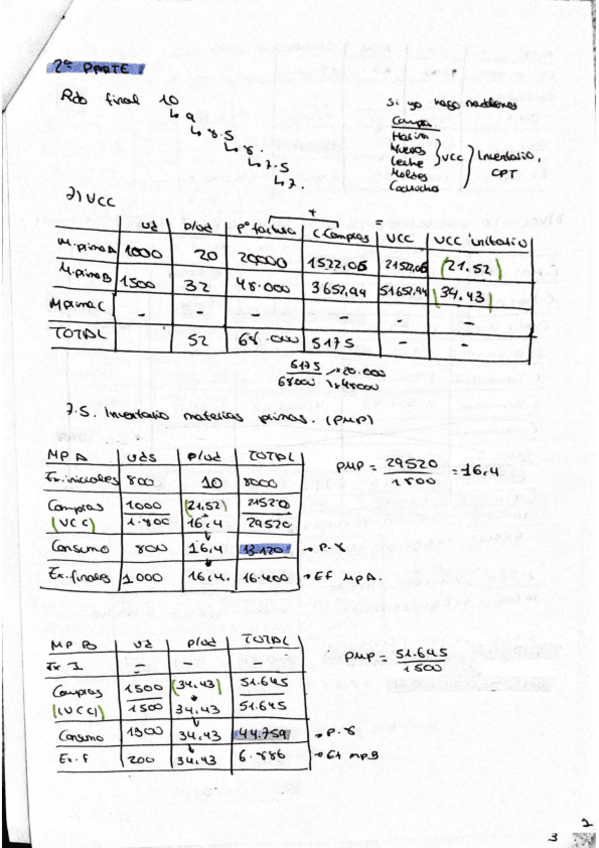 2ª PARTE.
Rdo final 10
↳ 9
↳ 8.5
↳ 8.
↳ 7.5
↳ 7.
Si yo hago magdalenas
Compra
Harina
Huevos
Leche
Moldes
} VCC } Inventario, CPT
7) VCC
+ =
ud p/ud Pº factura C. Compras VCC VCC unitario
M. prima A 1000 20 20000 1522,06 2152,06 (21.52)
M. prima B 1500 32 48.000 3652,94 51652,94 (34.43)
M prima C - - - - - -
TOTAL 52 68.000 5175 - -
5175 / 68000 → 20.000
↘ 48000
7.5. Inventario materias primas. (PMP)
MP A Uds P/ud TOTAL
Ex. iniciales 800 10 8000
Compras 1000 (21,52) 21520
(VCC) 1.800 16.4 29520
Consumo 800 16,4 13.120 → P.8
Ex. finales 1000 16,4. 16.400 → Ef MPA.
PMP = 29520 / 1800 = 16.4
MP B Ud p/ud TOTAL
Ex I. - - -
Compras 1500 (34.43) 51.645
(VCC) 1500 34.43 51.645
Consumo 1300 34.43 44.759 → P.8
Ex. F 200 34,43 6.886 → Ef MPB
PMP = 51.645 / 1500
3